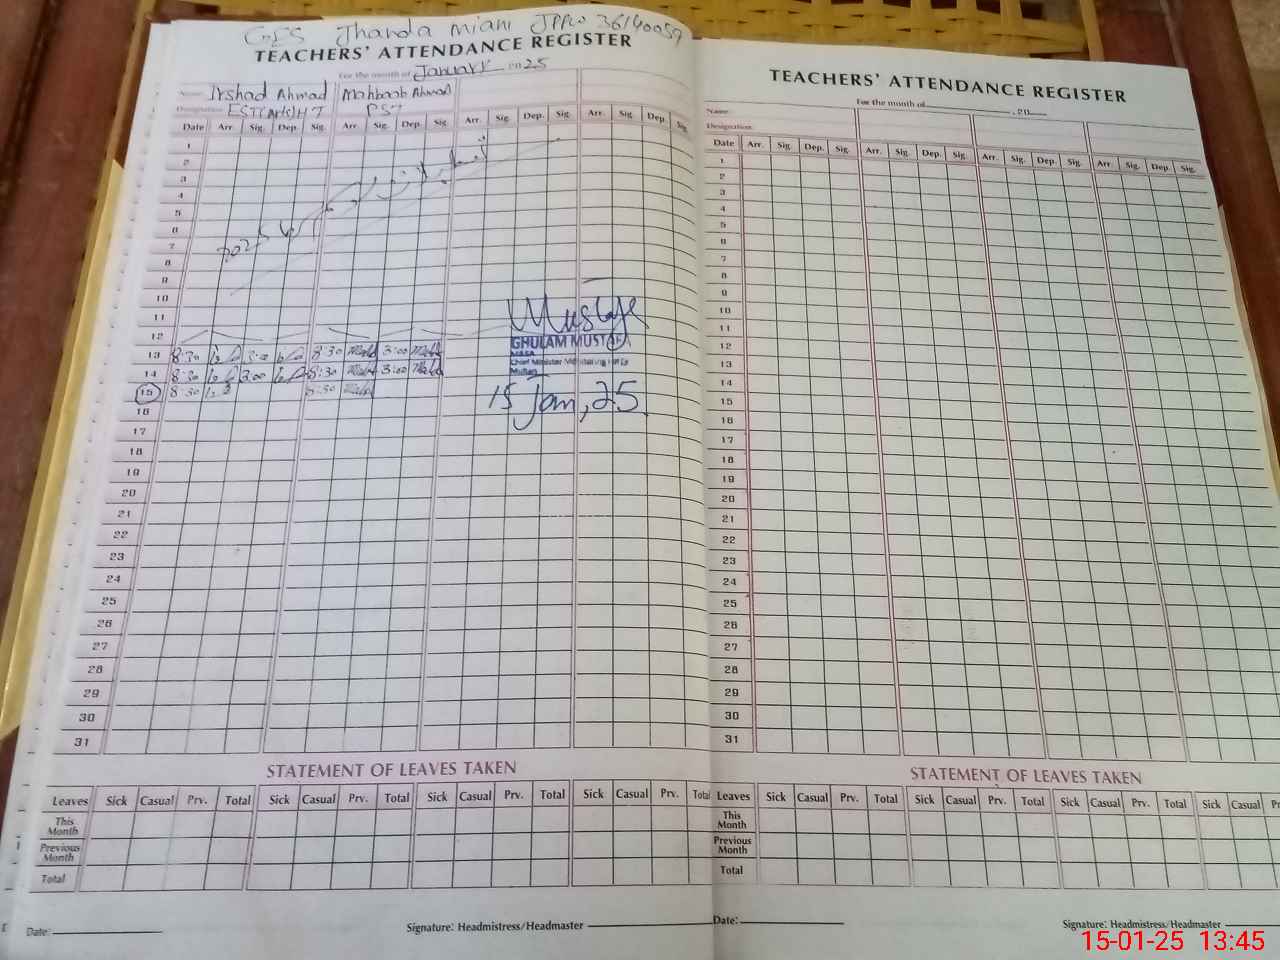 GES Jhanda Miani JPPW 36140059
TEACHERS' ATTENDANCE REGISTER
For the month of January 2025
Name Irshad Ahmad Mahboob Ahmad
Designation EST(Arts)HT PST
Date Arr. Sig. Dep. Sig. Arr. Sig. Dep. Sig. Arr. Sig. Dep. Sig. Arr. Sig. Dep. Sig.
1
2
3
4
5
6
7
8
9
10
11
12
13 8:30 3:00 8:30 3:00
14 8:30 3:00 8:30 3:00
15 8:30 8:30
16
17
18
19
20
21
22
23
24
25
26
27
28
29
30
31
2025
Mustafa
GHULAM MUSTAFA
MEA
Chief Minister Monitoring Force
Multan
15 Jan, 25
STATEMENT OF LEAVES TAKEN
Leaves Sick Casual Prv. Total Sick Casual Prv. Total Sick Casual Prv. Total Sick Casual Prv. Total
This Month
Previous Month
Total
Date:
Signature: Headmistress/Headmaster
TEACHERS' ATTENDANCE REGISTER
For the month of , 20
Name:
Designation:
Date Arr. Sig. Dep. Sig. Arr. Sig. Dep. Sig. Arr. Sig. Dep. Sig. Arr. Sig. Dep. Sig.
1
2
3
4
5
6
7
8
9
10
11
12
13
14
15
16
17
18
19
20
21
22
23
24
25
26
27
28
29
30
31
STATEMENT OF LEAVES TAKEN
Leaves Sick Casual Prv. Total Sick Casual Prv. Total Sick Casual Prv. Total Sick Casual Pr
This Month
Previous Month
Total
Date:
Signature: Headmistress/Headmaster
15-01-25 13:45